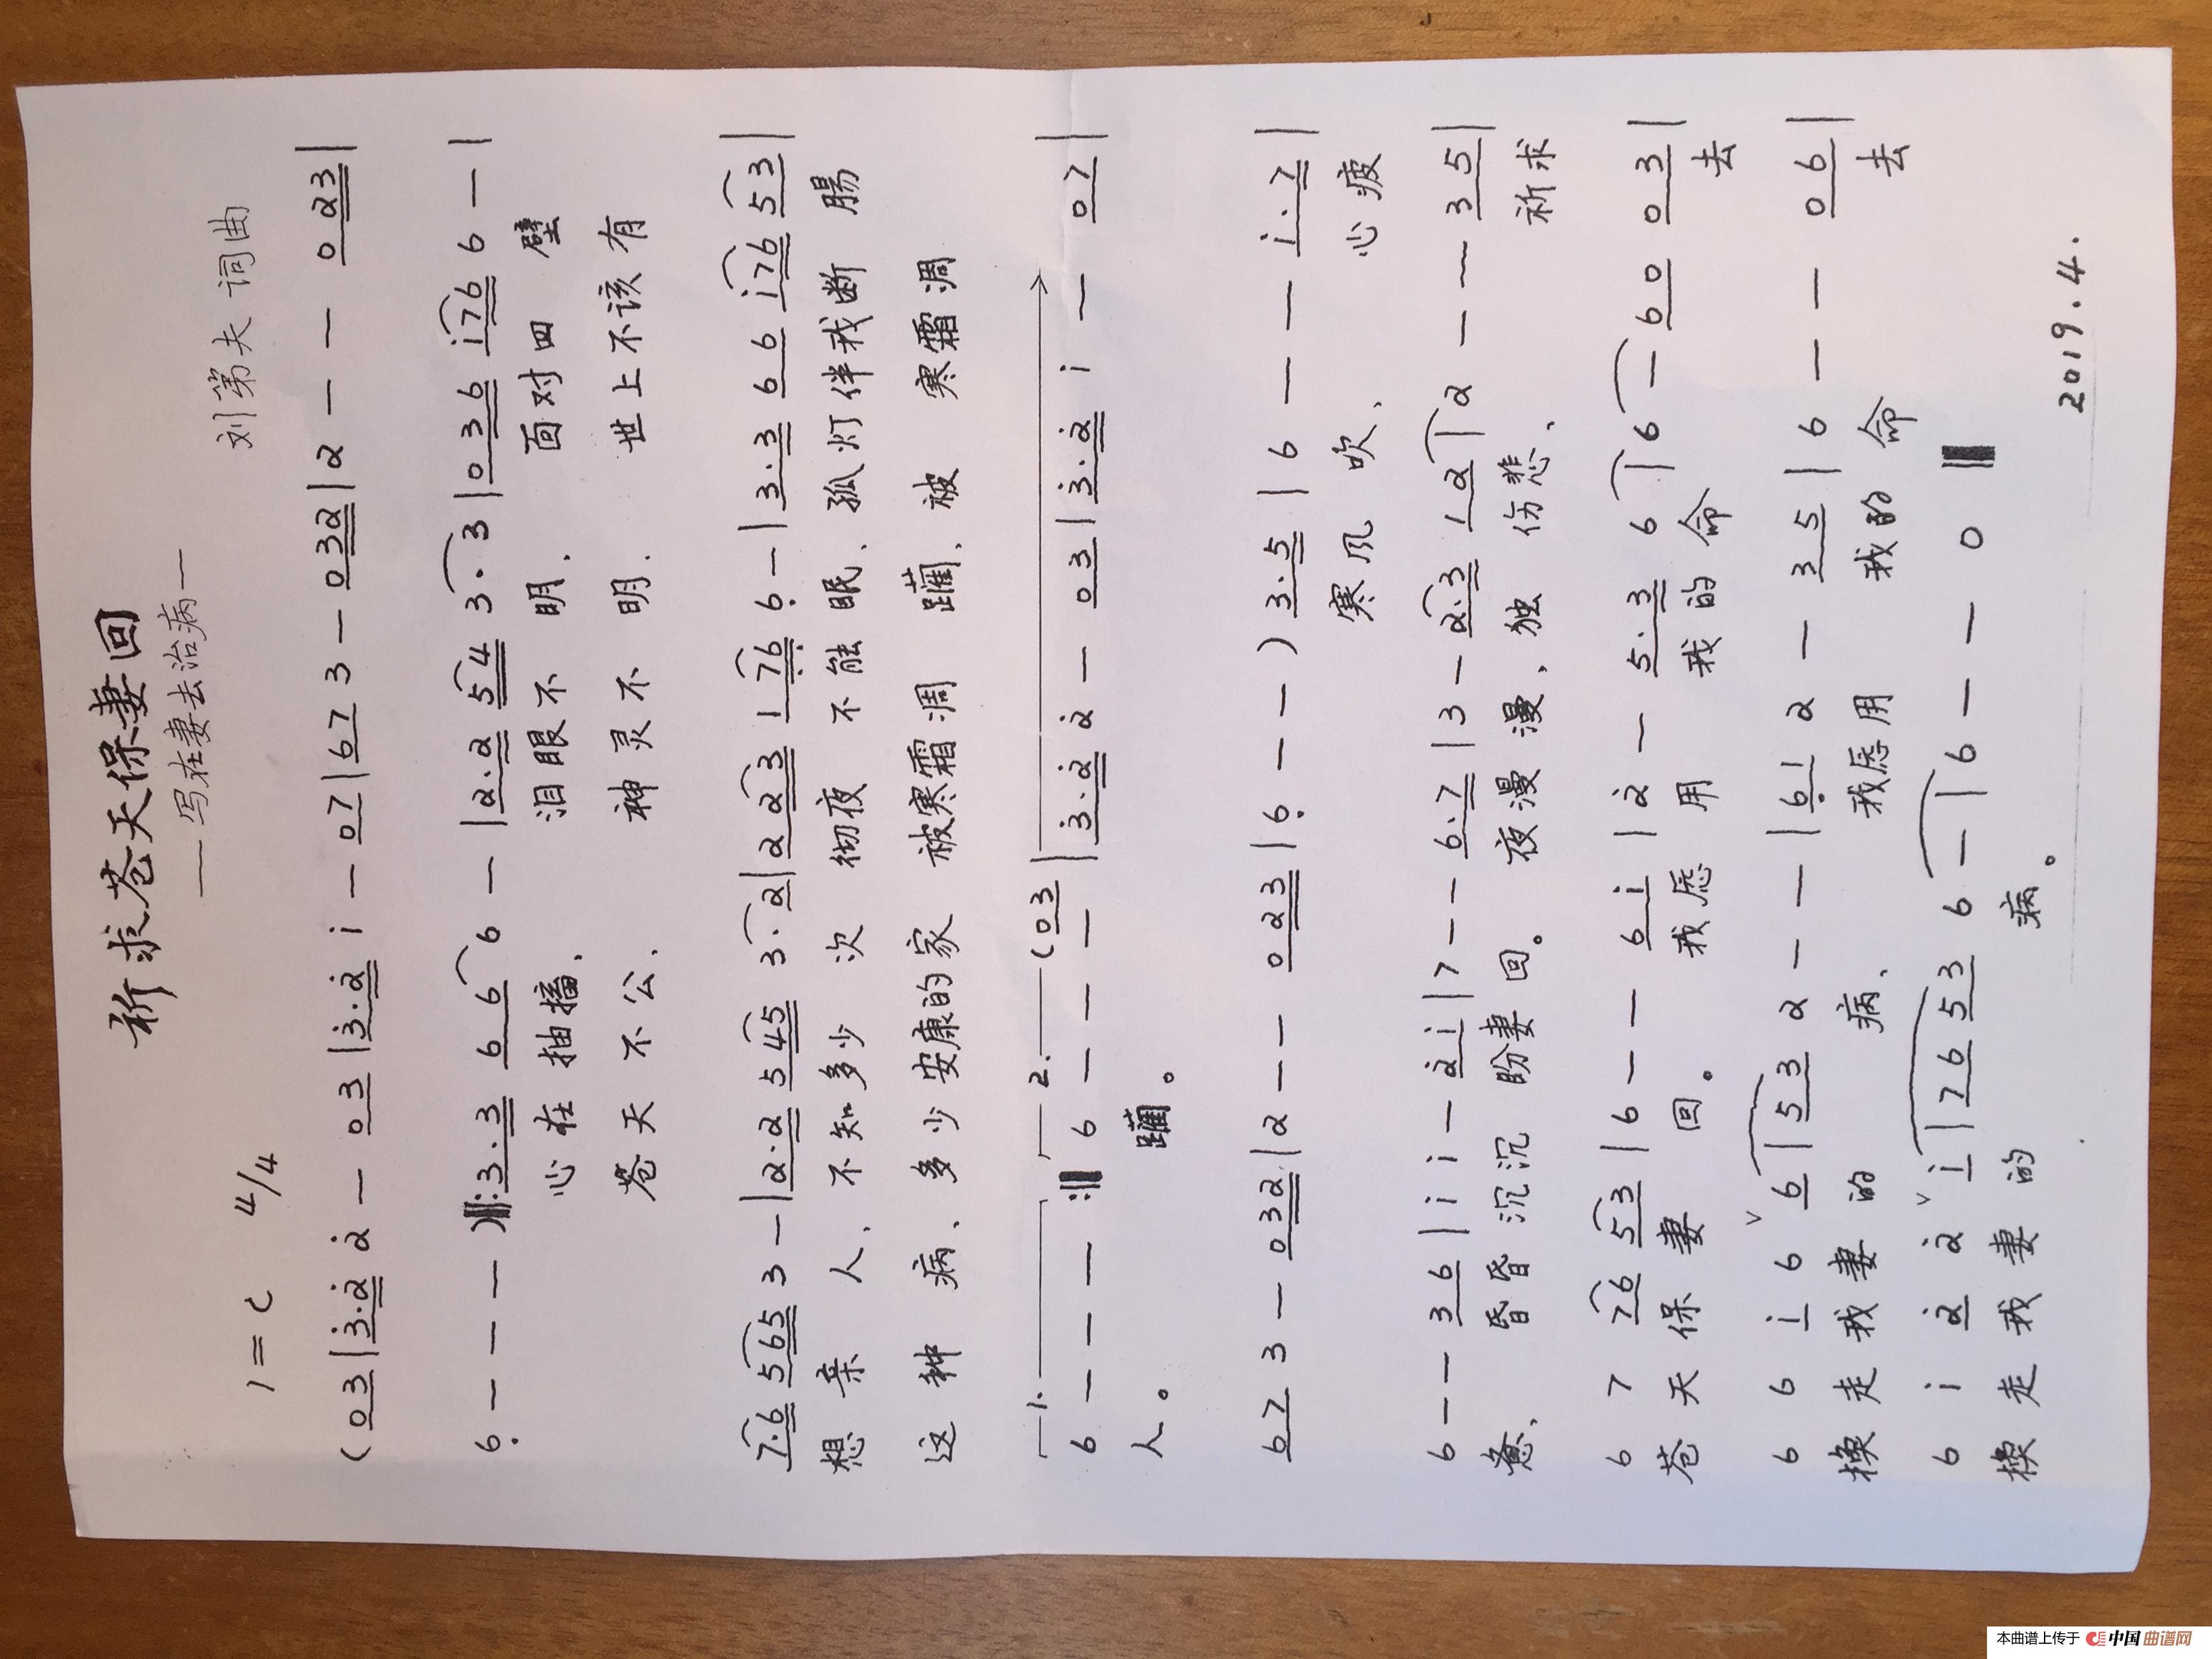 祈求苍天保妻回
——写在妻去治病—
刘第夫 词曲
1=C 4/4
(03|3·2 2 — 03|3·2 1 — 07|67 3 — 032|2 — — 023|
6 — — — )‖:3·3 66 6 — |2·2 54 3·3|036 176 6 — |
心在 抽搐、 泪眼不 明、 面对四 壁
苍天 不公、 神灵不 明、 世上不该有
7·6 565 3 — |2·2 5 45 3·2|2 23 1 76 6 — |3·3 66 176 53|
想 亲 人、 不知多少 次 彻夜 不能 眠、 孤灯伴我断 肠
这 种 病、 多少安康的家 被寒霜凋 躏、被 寒霜凋
1. 2. (03
6 — — — :‖ 6 — — — |3·2 2 — 03|3·2 1 — 07|
人。 躏。
67 3 — 032|2 — — 023|6 — — )3·5|6 — — 1·7|
寒风 吹、 心疲
6 — — 36|1 1 — 21|7 — — 6·7|3 — 2·3 12|2 — — 35|
惫、 昏昏沉沉 盼妻回。 夜漫漫、独 伤悲、 祈求
6 7 76 53|6 — — 61|2 — 5·3 6|6 — 60 03|
苍天保 妻 回。 我愿 用 我的 命 去
6 6 1 6 6|53 2 — — |61 2 — 35|6 — — 06|
换走我妻的 病、 我愿用 我的 命 去
6 1 2 2 1|76 53 6 — |6 — — 0‖
换走我妻的 病。
2019.4.
本曲谱上传于 中国曲谱网